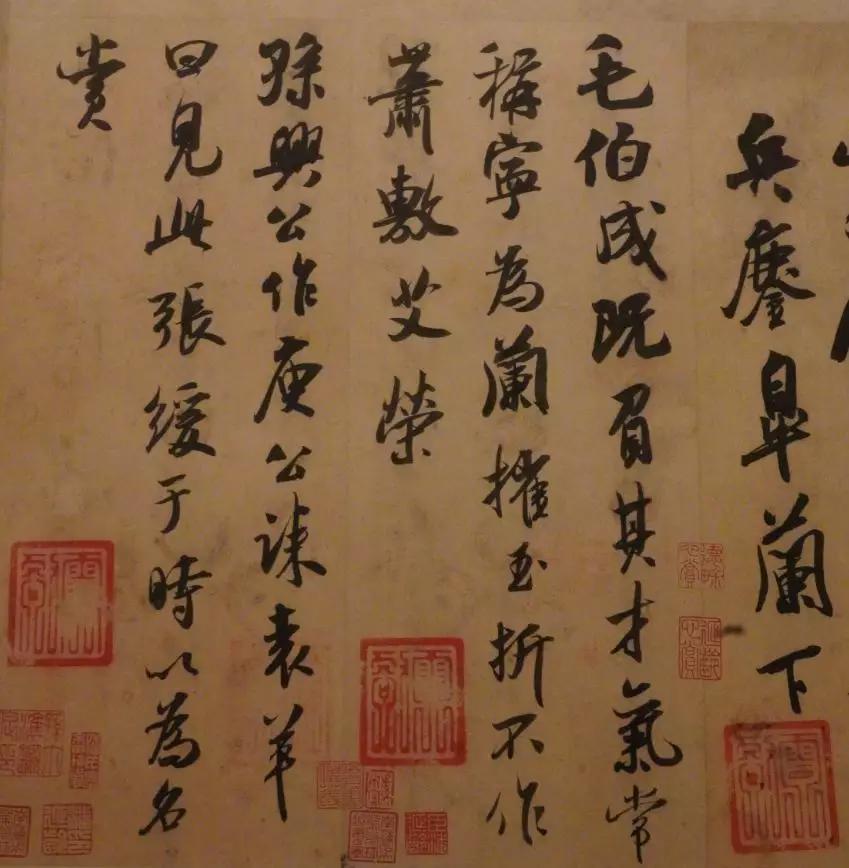 兵鏖皋蘭下
毛伯成既負其才氣常
稱寧為蘭摧玉折不作
蕭敷艾榮
孫興公作庾公誄袁羊
曰見此張緩于時以為名
賞